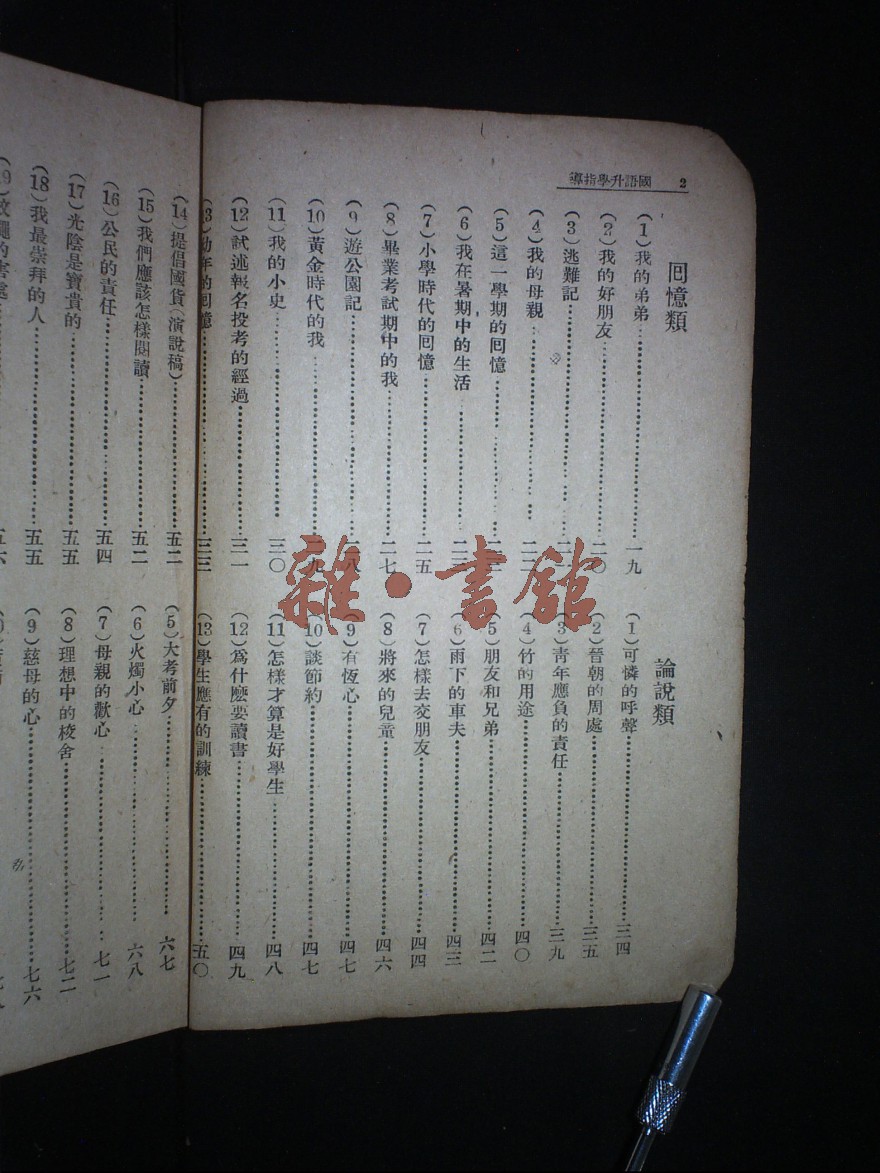 2 國語升學指導
回憶類
(1)我的弟弟……一九
(2)我的好朋友……二〇
(3)逃難記……
(4)我的母親……二二
(5)這一學期的回憶……
(6)我在暑期中的生活……
(7)小學時代的回憶……二五
(8)畢業考試期中的我……二七
(9)遊公園記……二八
(10)黃金時代的我……二九
(11)我的小史……三〇
(12)試述報名投考的經過……三一
(13)幼年的回憶……三三
論說類
(1)可憐的呼聲……三四
(2)晉朝的周處……三五
(3)青年應負的責任……三九
(4)竹的用途……四〇
(5)朋友和兄弟……四二
(6)雨下的車夫……四三
(7)怎樣去交朋友……四四
(8)將來的兒童……四六
(9)有恆心……四七
(10)談節約……四七
(11)怎樣才算是好學生……四八
(12)爲什麽要讀書……四九
(13)學生應有的訓練……五〇
(14)提倡國貨(演說稿)……五二
(15)我們應該怎樣閱讀……五二
(16)公民的責任……五四
(17)光陰是寶貴的……五五
(18)我最崇拜的人……五五
的害處……五六
(5)大考前夕……六七
(6)火燭小心……六八
(7)母親的歡心……七一
(8)理想中的校舍……七二
(9)慈母的心……七六
雜·書館